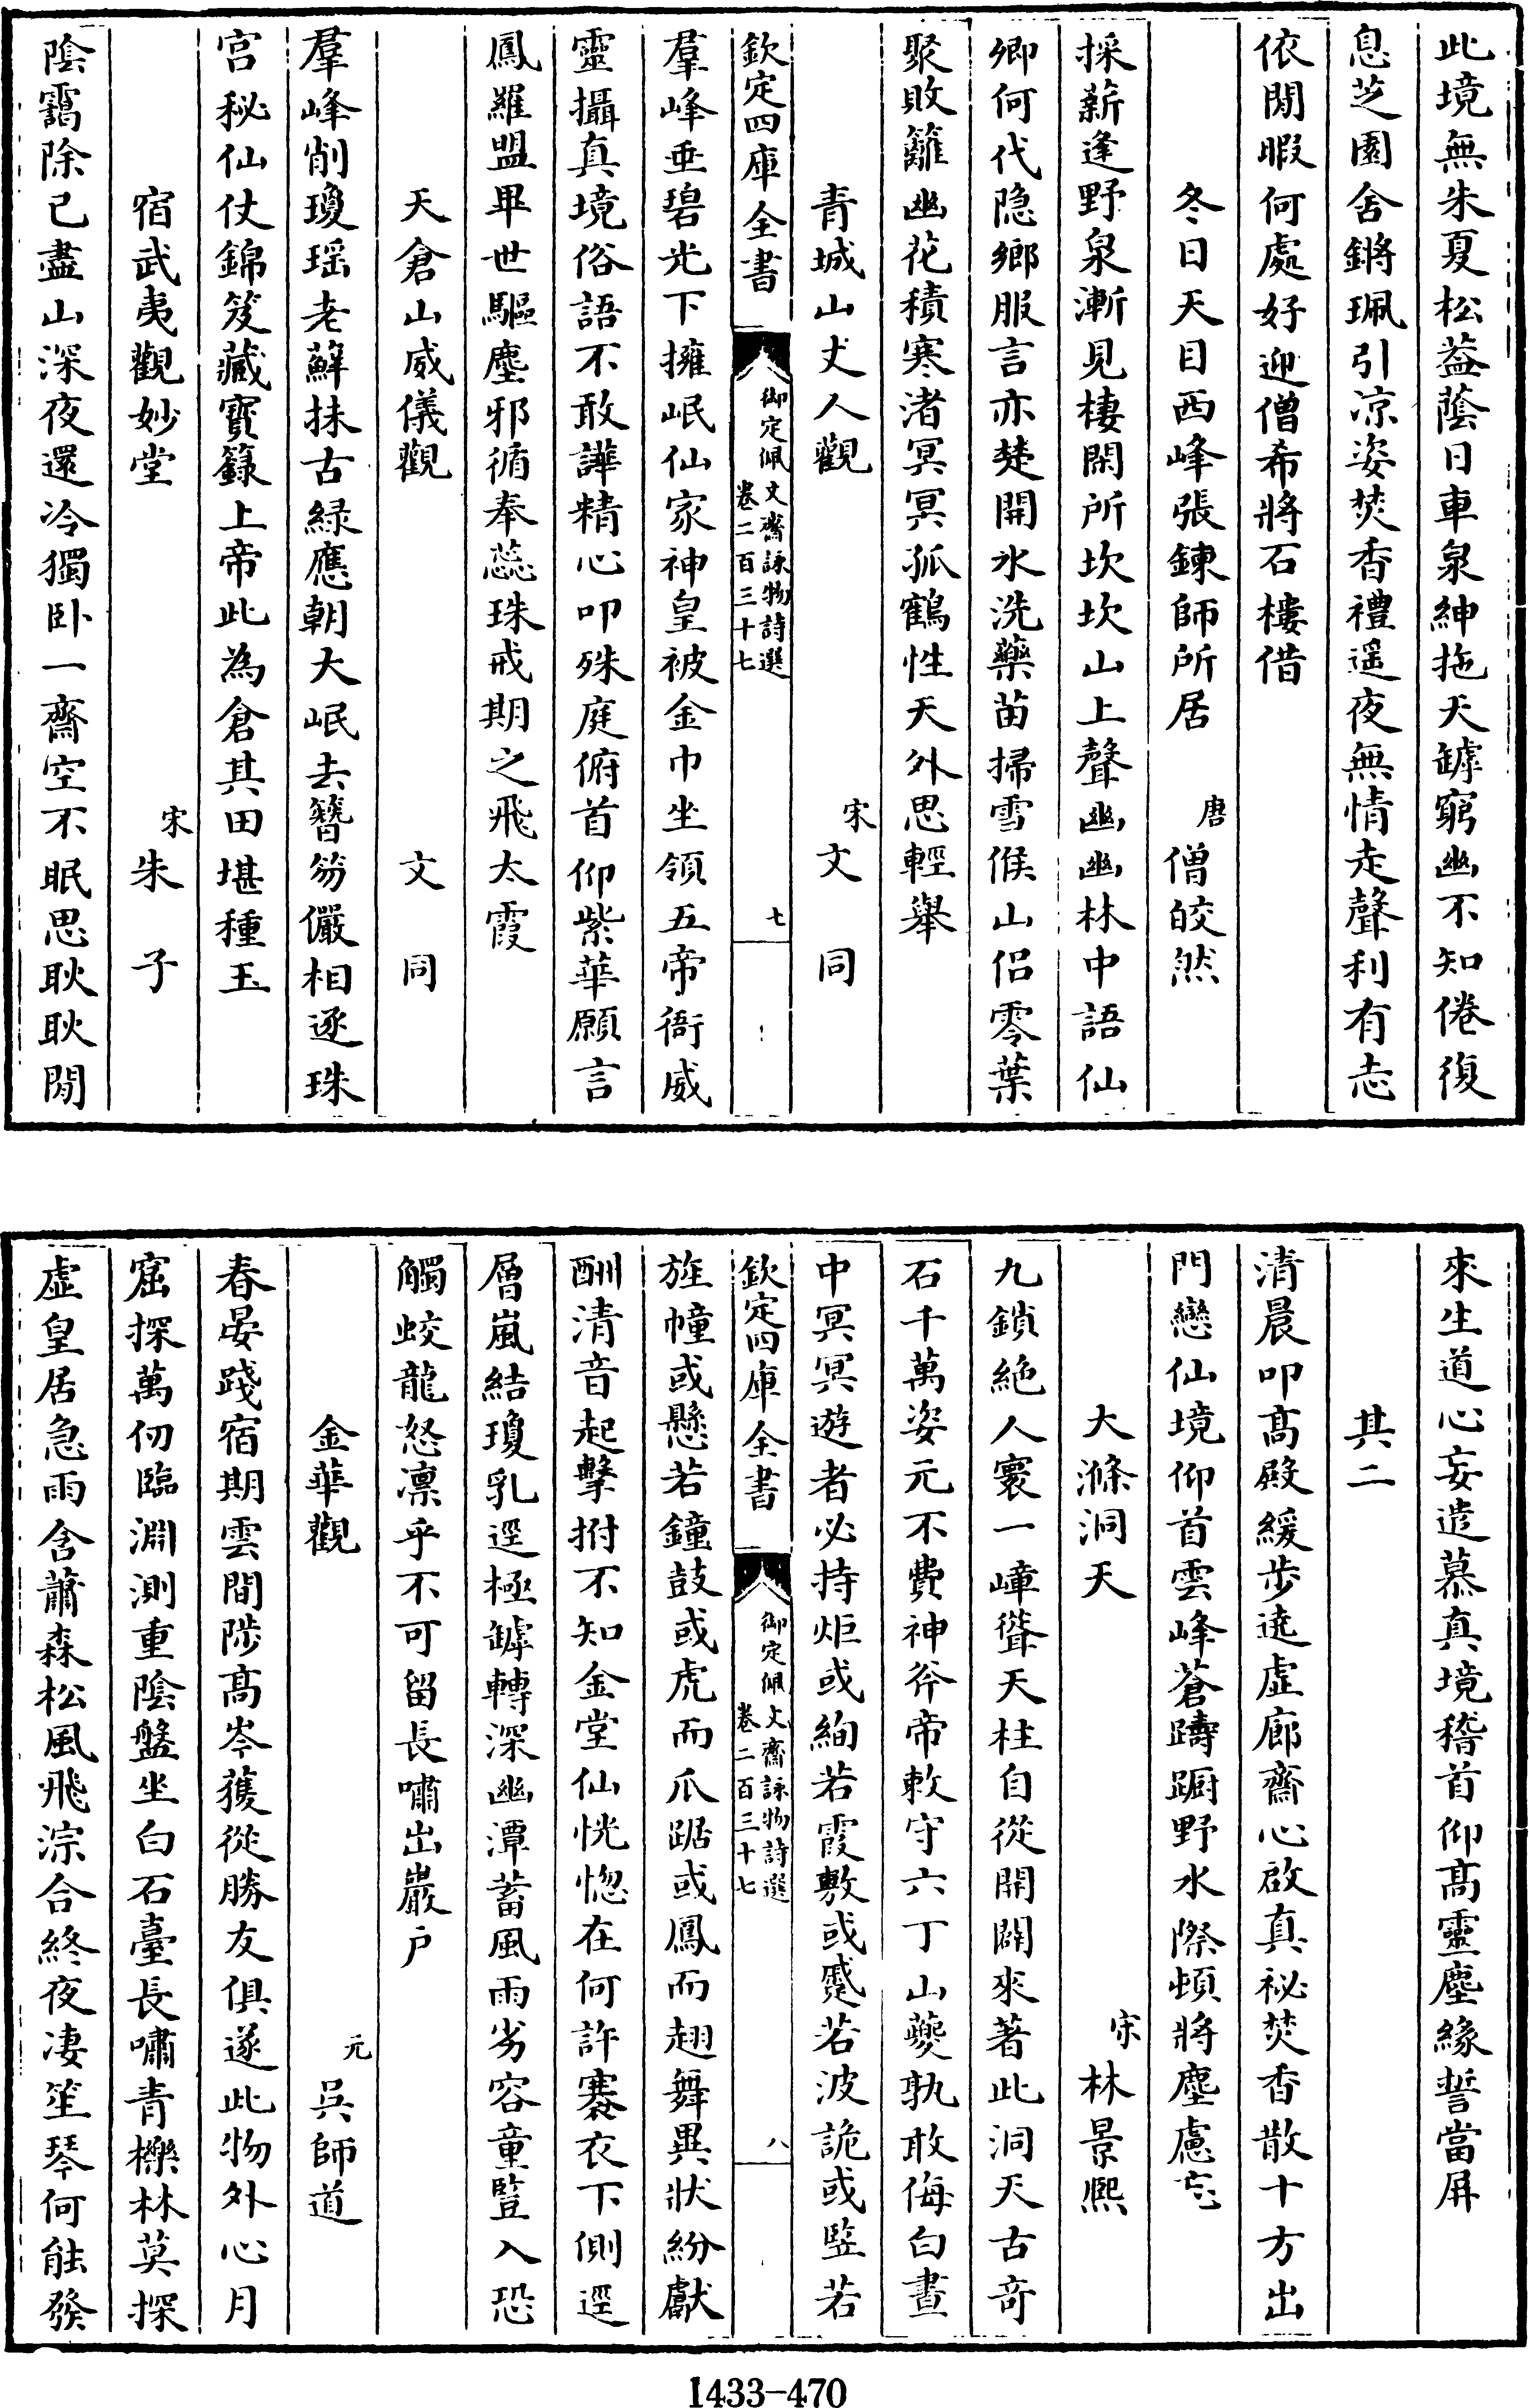 此境無朱夏松葢蔭日車泉紳拖天罅窮幽不知倦復
息芝園舍鏘珮引凉姿焚香禮遥夜無情走聲利有志
依閒暇何處好迎僧希將石樓借
冬日天目西峰張鍊師所居 唐 僧皎然
採薪逢野泉漸見棲閑所坎坎山上聲幽幽林中語仙
卿何代隐鄉服言亦楚開水洗藥苗掃雪候山侣零葉
聚敗籬幽花積寒渚冥冥孤鶴性天外思輕舉
青城山丈人觀 宋 文同
欽定四庫全書 御定佩文齋詠物詩選 卷二百三十七 七
羣峰垂碧光下擁岷仙家神皇被金巾坐領五帝衙威
靈攝真境俗語不敢譁精心叩殊庭俯首仰紫華願言
鳳羅盟畢世驅塵邪循奉蕊珠戒期之飛太霞
天倉山威儀觀 文同
羣峰削瓊瑶老蘚抹古緑應朝大岷去簪笏儼相逐珠
宫秘仙仗錦笈藏寳籙上帝此為倉其田堪種玉
宿武夷觀妙堂 宋 朱子
陰靄除已盡山深夜還冷獨卧一齋空不眠思耿耿閒
來生道心妄遣慕真境稽首仰髙靈塵緣誓當屏
其二
清晨叩髙殿緩步遶虚廊齋心啟真祕焚香散十方出
門戀仙境仰首雲峰蒼躊蹰野水際頓將塵慮忘
大滌洞天 宋 林景熙
九鎖絶人寰一嶂聳天柱自從開闢來著此洞天古竒
石千萬姿元不費神斧帝敕守六丁山夔孰敢侮白晝
中冥冥遊者必持炬或絢若霞敷或蹙若波詭或竪若
欽定四庫全書 御定佩文齋詠物詩選 卷二百三十七 八
旌幢或懸若鐘鼓或虎而爪踞或鳳而翅舞異狀紛獻
酬清音起擊拊不知金堂仙恍惚在何許褰衣下側逕
層嵐結瓊乳逕極罅轉深幽潭蓄風雨劣容童豎入恐
觸蛟龍怒凛乎不可留長嘯出巖户
金華觀 元 吳師道
春晏踐宿期雲間陟髙岑獲從勝友俱遂此物外心月
窟探萬仞臨淵測重陰盤坐白石臺長嘯青櫟林莫探
虚皇居急雨含蕭森松風飛淙合終夜凄笙琴何能發
1433-470